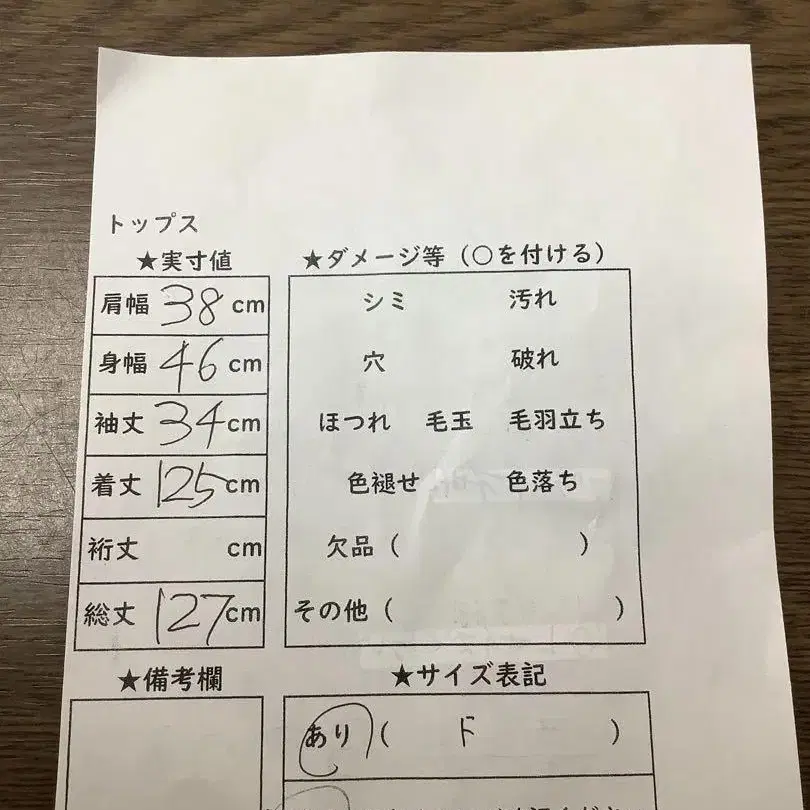 トップス
★実寸値
肩幅 38 cm
身幅 46 cm
袖丈 34 cm
着丈 125 cm
裄丈 cm
総丈 127 cm
★ダメージ等(○を付ける)
シミ 汚れ
穴 破れ
ほつれ 毛玉 毛羽立ち
色褪せ 色落ち
欠品( )
その他( )
★備考欄
★サイズ表記
あり( F )